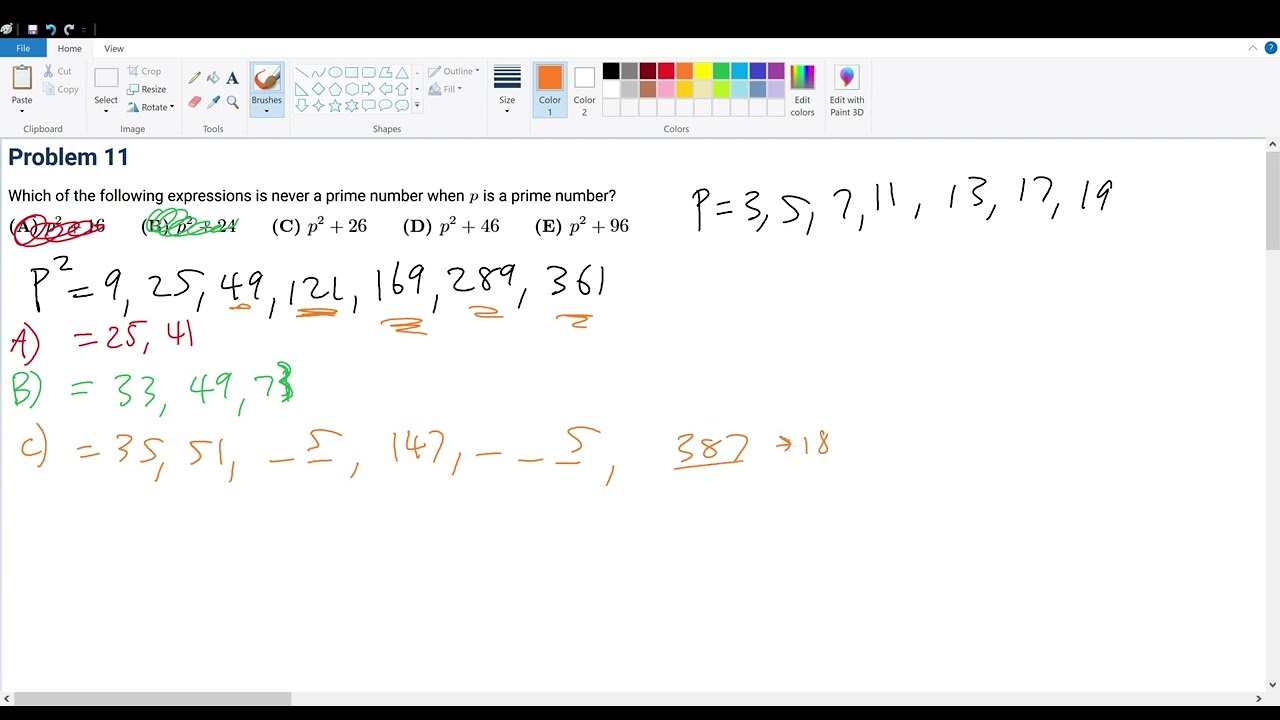 File Home View
Paste Cut Copy Clipboard
Select Crop Resize Rotate Image
A Tools
Brushes
Shapes
Outline Fill
Size
Color 1
Color 2
Colors
Edit colors
Edit with Paint 3D
Problem 11
Which of the following expressions is never a prime number when p is a prime number?
(A) p² + 16 (B) p² + 24 (C) p² + 26 (D) p² + 46 (E) p² + 96
P = 3, 5, 7, 11, 13, 17, 19
P² = 9, 25, 49, 121, 169, 289, 361
A) = 25, 41
B) = 33, 49, 73
C) = 35, 51, _ 5, 147, _ _ 5, 387 → 18